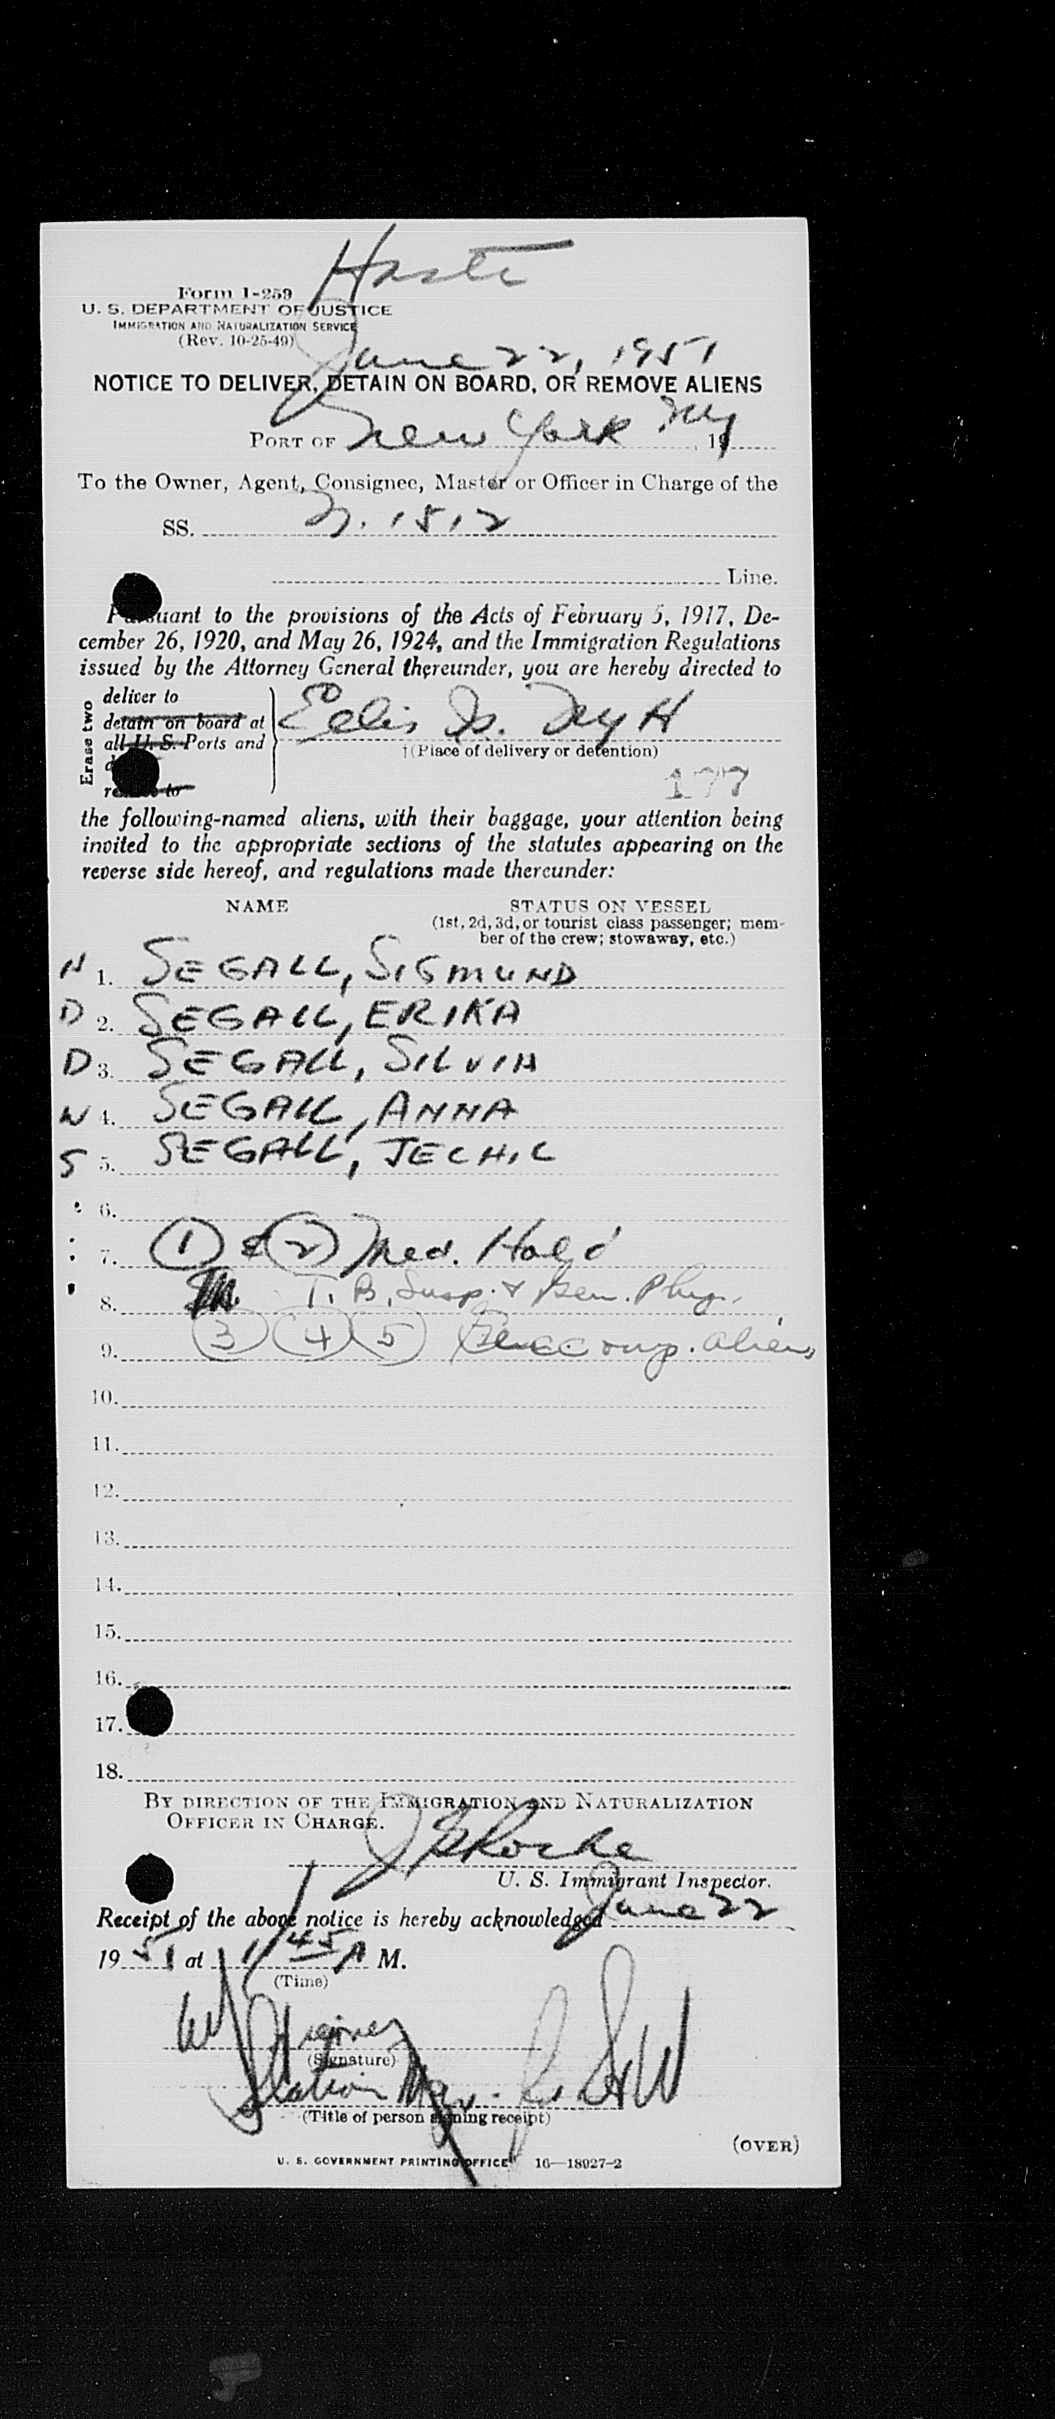 Form I-259
U. S. DEPARTMENT OF JUSTICE
IMMIGRATION AND NATURALIZATION SERVICE
(Rev. 10-25-49)
June 22, 1951
NOTICE TO DELIVER, DETAIN ON BOARD, OR REMOVE ALIENS
PORT OF New York NY, 19
To the Owner, Agent, Consignee, Master or Officer in Charge of the
SS. N. 1512
Line.
Pursuant to the provisions of the Acts of February 5, 1917, De-
cember 26, 1920, and May 26, 1924, and the Immigration Regulations
issued by the Attorney General thereunder, you are hereby directed to
Erase two
deliver to
detain on board at
all U. S. Ports and
Ellis Is. NYH
†(Place of delivery or detention)
177
the following-named aliens, with their baggage, your attention being
invited to the appropriate sections of the statutes appearing on the
reverse side hereof, and regulations made thereunder:
NAME STATUS ON VESSEL
(1st, 2d, 3d, or tourist class passenger; mem-
ber of the crew; stowaway, etc.)
H 1. SEGALL, SIGMUND
D 2. SEGALL, ERIKA
D 3. SEGALL, SILVIA
W 4. SEGALL, ANNA
S 5. SEGALL, JECHIL
6.
7. 1 & 2 Med. Hold
8. T. B. Susp. & Gen. Phys.
9. 3 4 5 Accomp. aliens
10.
11.
12.
13.
14.
15.
16.
17.
18.
BY DIRECTION OF THE IMMIGRATION AND NATURALIZATION
OFFICER IN CHARGE.
J Roche
U. S. Immigrant Inspector.
Receipt of the above notice is hereby acknowledged June 22
1951 at 11 45 A M.
(Time)
(Signature)
Station Mgr.
(Title of person signing receipt)
(OVER)
U. S. GOVERNMENT PRINTING OFFICE 16—18927-2